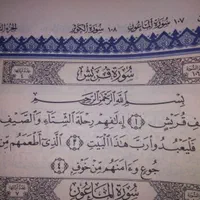 ١٠٧ سورة الماعون ١٠٨ سورة الكوثر
سُورَةُ قُرَيْشٍ
بِسْمِ ٱللَّهِ ٱلرَّحْمَٰنِ ٱلرَّحِيمِ
قُرَيْشٍ ١ إِۦلَٰفِهِمْ رِحْلَةَ ٱلشِّتَآءِ وَٱلصَّيْفِ
فَلْيَعْبُدُوا۟ رَبَّ هَٰذَا ٱلْبَيْتِ ٣ ٱلَّذِىٓ أَطْعَمَهُم مِّن
جُوعٍ وَءَامَنَهُم مِّنْ خَوْفٍ ٤
سُورَةُ ٱلْمَاعُونِ